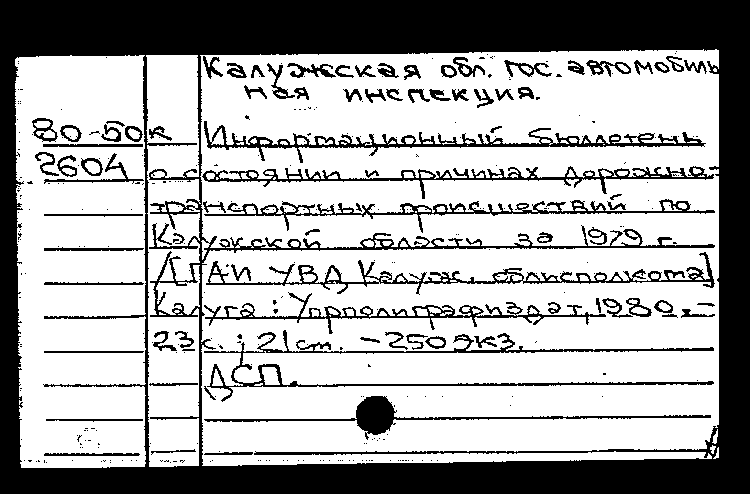 Калужская обл. гос. автомобиль
ная инспекция.
80-50к Информационный бюллетень
2604 о состоянии и причинах дорожно-
транспортных происшествий по
Калужской области за 1979 г.
/[ГАИ УВД Калуж. облисполкома].
Калуга: Упрполиграфиздат, 1980. –
23 с.; 21 см. – 250 экз.
ДСП.